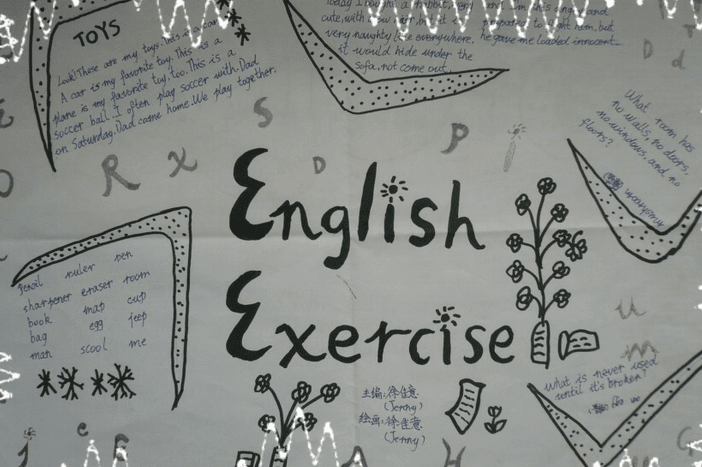 TOYS
Look! These are my toys. This is a car.
A car is my favorite toy. This is a
plane is my favorite toy, too. This is a
soccer ball. I often play soccer with Dad
on Saturday. Dad came home. We play together.
today I bought a rabbit, very
cute, with
very naughty like everywhere.
it would hide under the
sofa, not come out.
he gave me loaded innocent
What room has
no walls, no doors,
no windows, and no
floors?
English
Exercise
pencil ruler pen
sharpener eraser room
book map cup
bag egg jeep
man scool me
主编:徐佳意
(Jenny)
绘画:徐佳意
(Jenny)
what is never used
until it's broken?